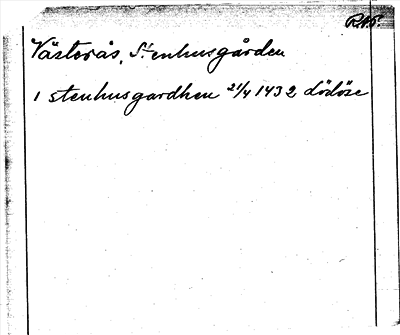 RAP.
Västerås, Stenhusgården
i stenhusgardhen 21/4 1432 Lödöse